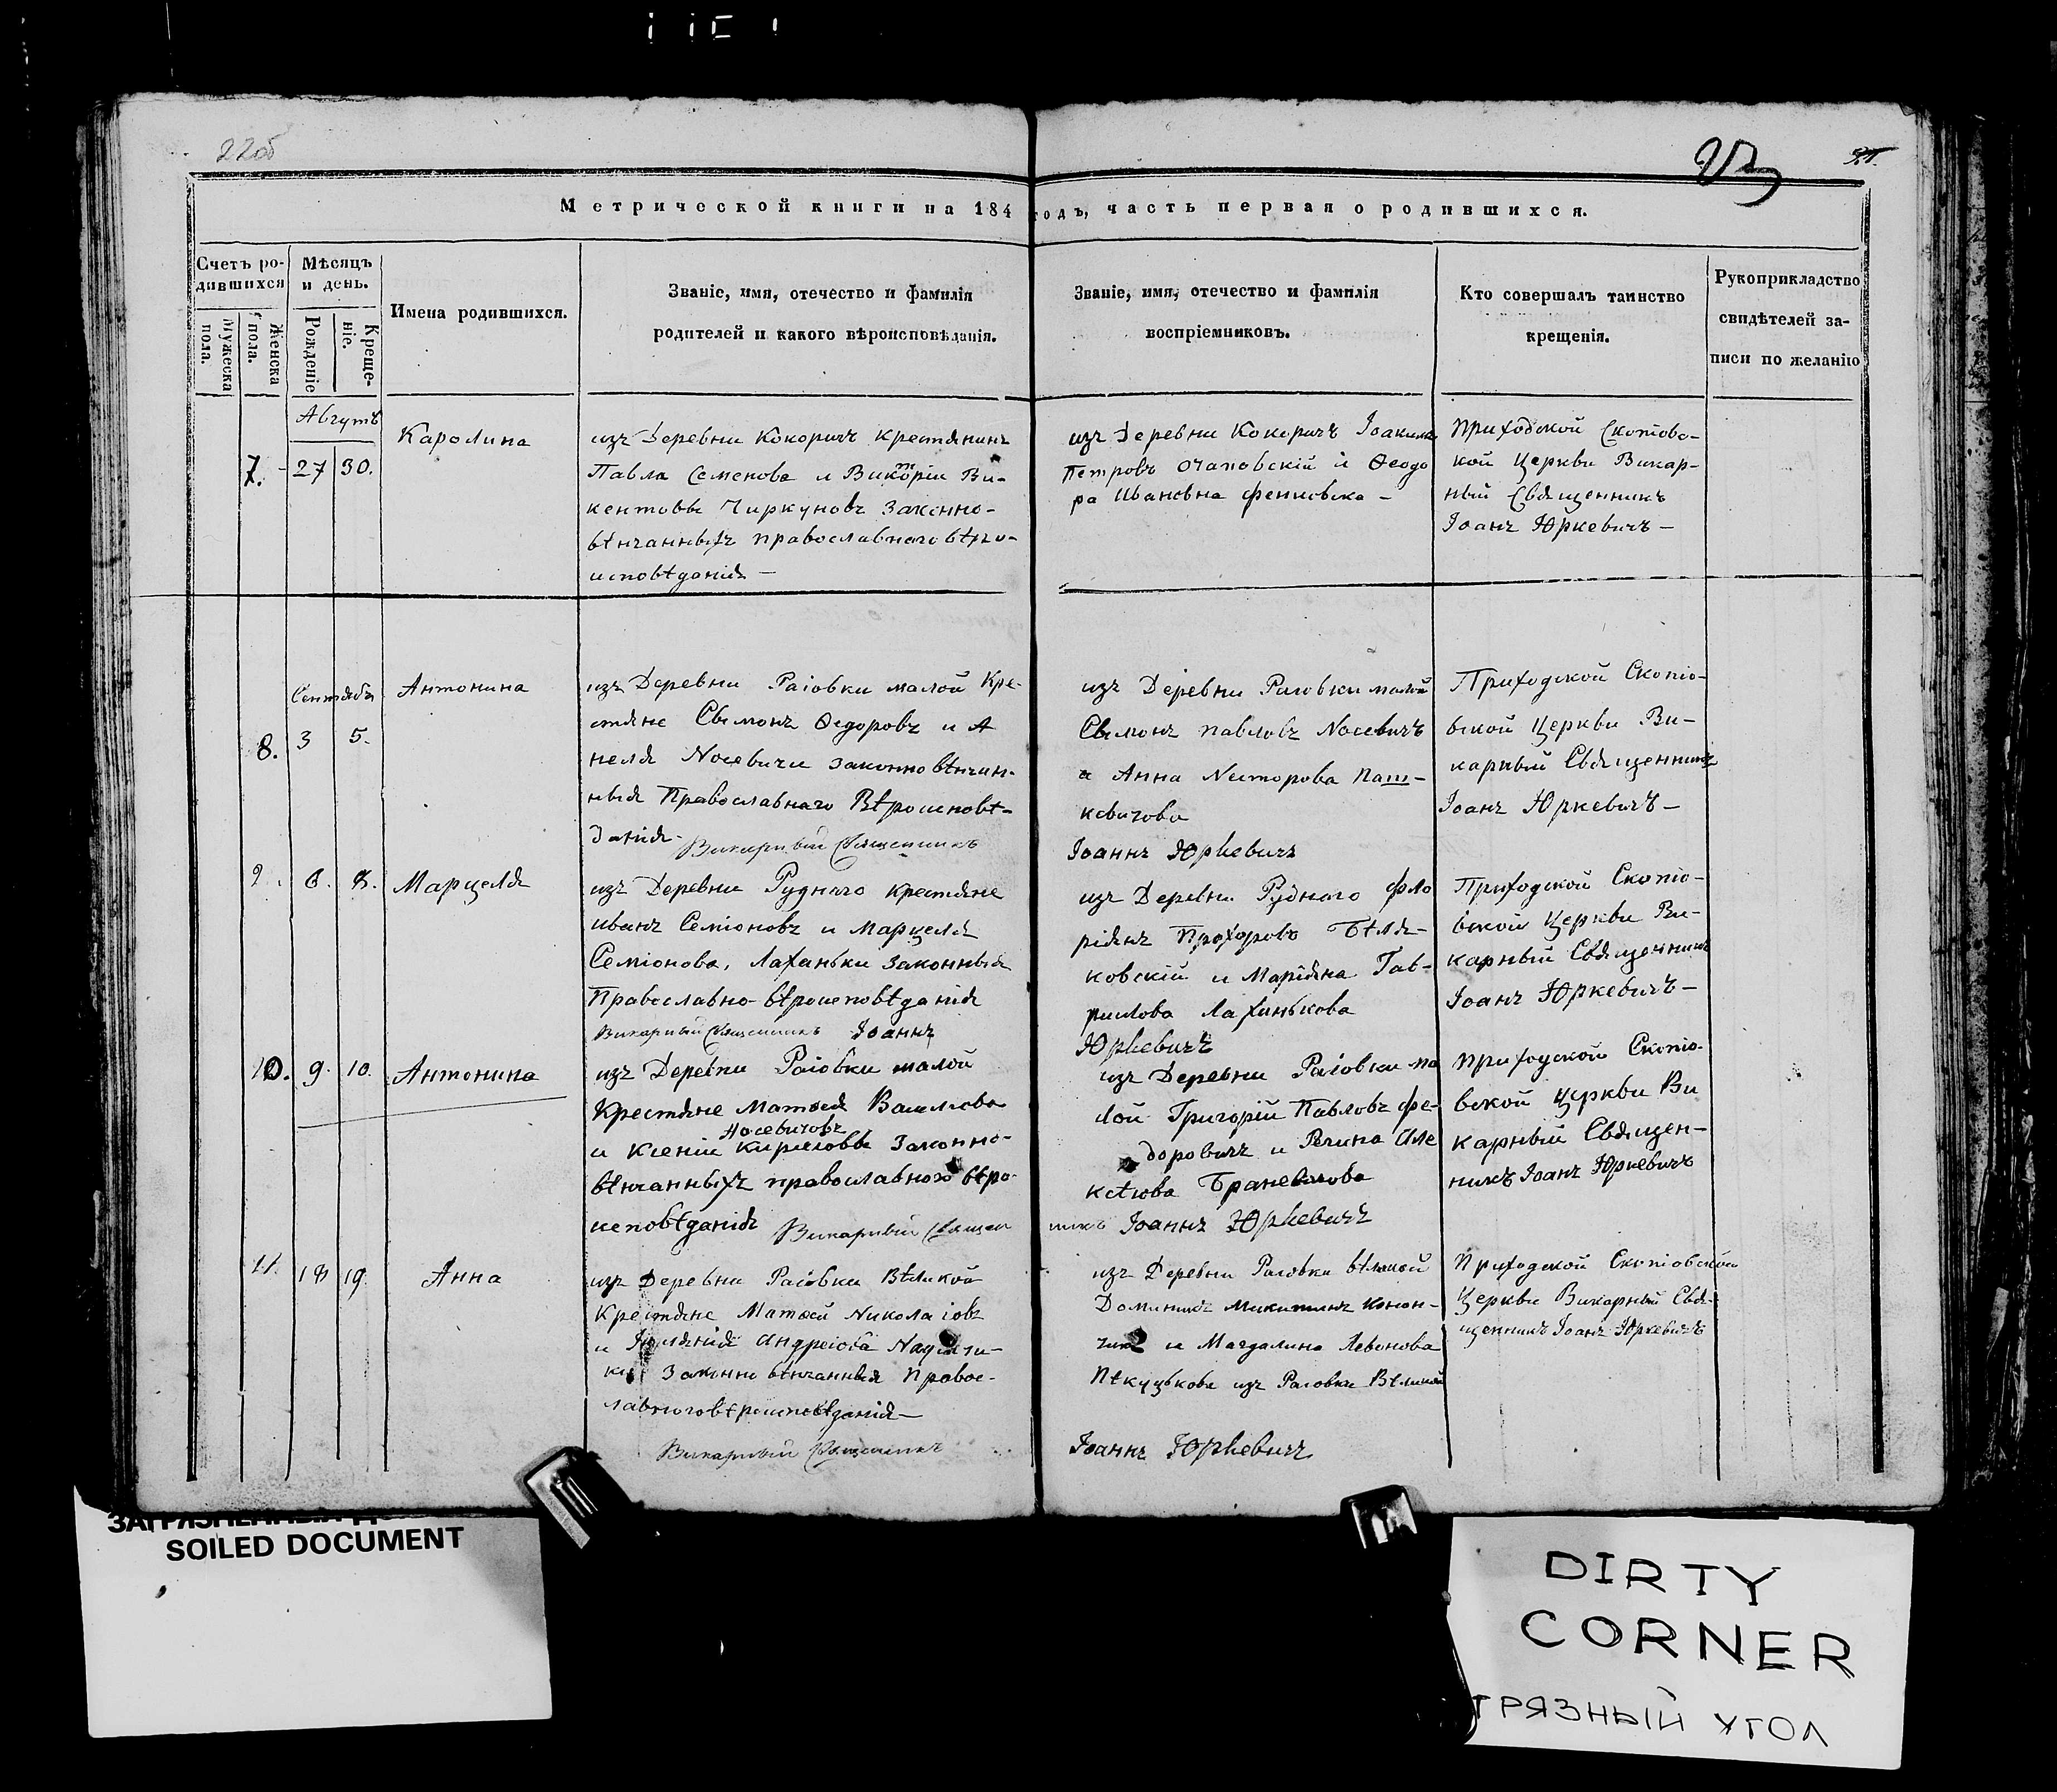 22об
23
Метрической книги на 184 годъ, часть первая о родившихся.
Счетъ ро-
дившихся
Мужеска
пола.
Женска
пола.
Мѣсяцъ
и день.
Рожденіе
Креще-
ніе.
Имена родившихся.
Званіе, имя, отечество и фамилія
родителей и какого вѣроисповѣданія.
Званіе, имя, отечество и фамилія
воспріемниковъ.
Кто совершалъ таинство
крещенія.
Рукоприкладство
свидѣтелей за-
писи по желанію
Августъ
7. 27 30.
Каролина
изъ Деревни Кокоричъ крестянинъ
Павла Семенова и Викторіи Ви-
кентовы Чиркуновъ Законно-
вѣнчанныхъ православнаго вѣро-
исповѣданія —
изъ Деревни Кокоричъ Іоакимъ
Петровъ Очаповскій и Ѳеодо
ра Ивановна
Приходской Скотовс-
кой Церкви Викар-
ный Священникъ
Іоанъ Юркевичъ —
Сентября
8. 3 5.
Антонина
изъ Деревни Раіовки малой Кре-
стяне Сымонъ Ѳедоровъ и А
неля Nосевичи законновѣнчан-
ныя Православнаго Вѣроисповѣ-
данія — Викарный Священникъ
изъ Деревни Раіовки малой
Сымонъ Павловъ Nосевичъ
и Анна Nесторова Паш-
кевичова
Іоаннъ Юркевичъ
Приходской Скотіо-
вской Церкви Ви-
карный Священникъ
Іоанъ Юркевичъ —
9. 6. 8.
Марцеля
изъ Деревни Руднаго крестяне
иванъ Семіоновъ и Марцеля
Семіонова, Лаханьки Законныя
Православно-вѣроисповѣданія
Викарный Священникъ Іоаннъ
изъ Деревни Руднаго Фло
ріянъ Прохоровъ Бѣля-
ковскій и Маріяна Гав-
рилова Лаханькова
Юркевичъ
Приходской Скотіо-
вской Церкви Ви-
карный Священникъ
Іоанъ Юркевичъ —
10. 9. 10.
Антонина
изъ Деревни Раіовки малой
Крестяне Матѳея Василіова
Носевичовъ
и Ксеніи Кириловы Законно-
вѣнчанныхъ православнаго вѣро-
исповѣданія Викарный Священ
изъ Деревни Раіовки ма
лой Григорій Павловъ Фе-
доровичъ и Регина Але
ксѣіова
никъ Іоаннъ Юркевичъ
Приходской Скотіо-
вской Церкви Ви
карный Священ-
никъ Іоанъ Юркевичъ
11. 18 19.
Анна
изъ Деревни Раіовки Вѣликой
Крестяне Матѳей Nиколаіовъ
и Юліянія Андреіова
Законно вѣнчанныя Правос-
лавнаговѣроисповѣданія —
Викарный Священникъ
изъ Деревни Раіовки вѣликой
Доминикъ Микитинъ Конон-
и Магдалина Левонова
изъ Раіовки Вѣликой
Іоаннъ Юркевичъ
Приходской Скотіовской
Церкви Викарный Свя-
щенникъ Іоанъ Юркевичъ
SOILED DOCUMENT
DIRTY
CORNER
ГРЯЗНЫЙ УГОЛ